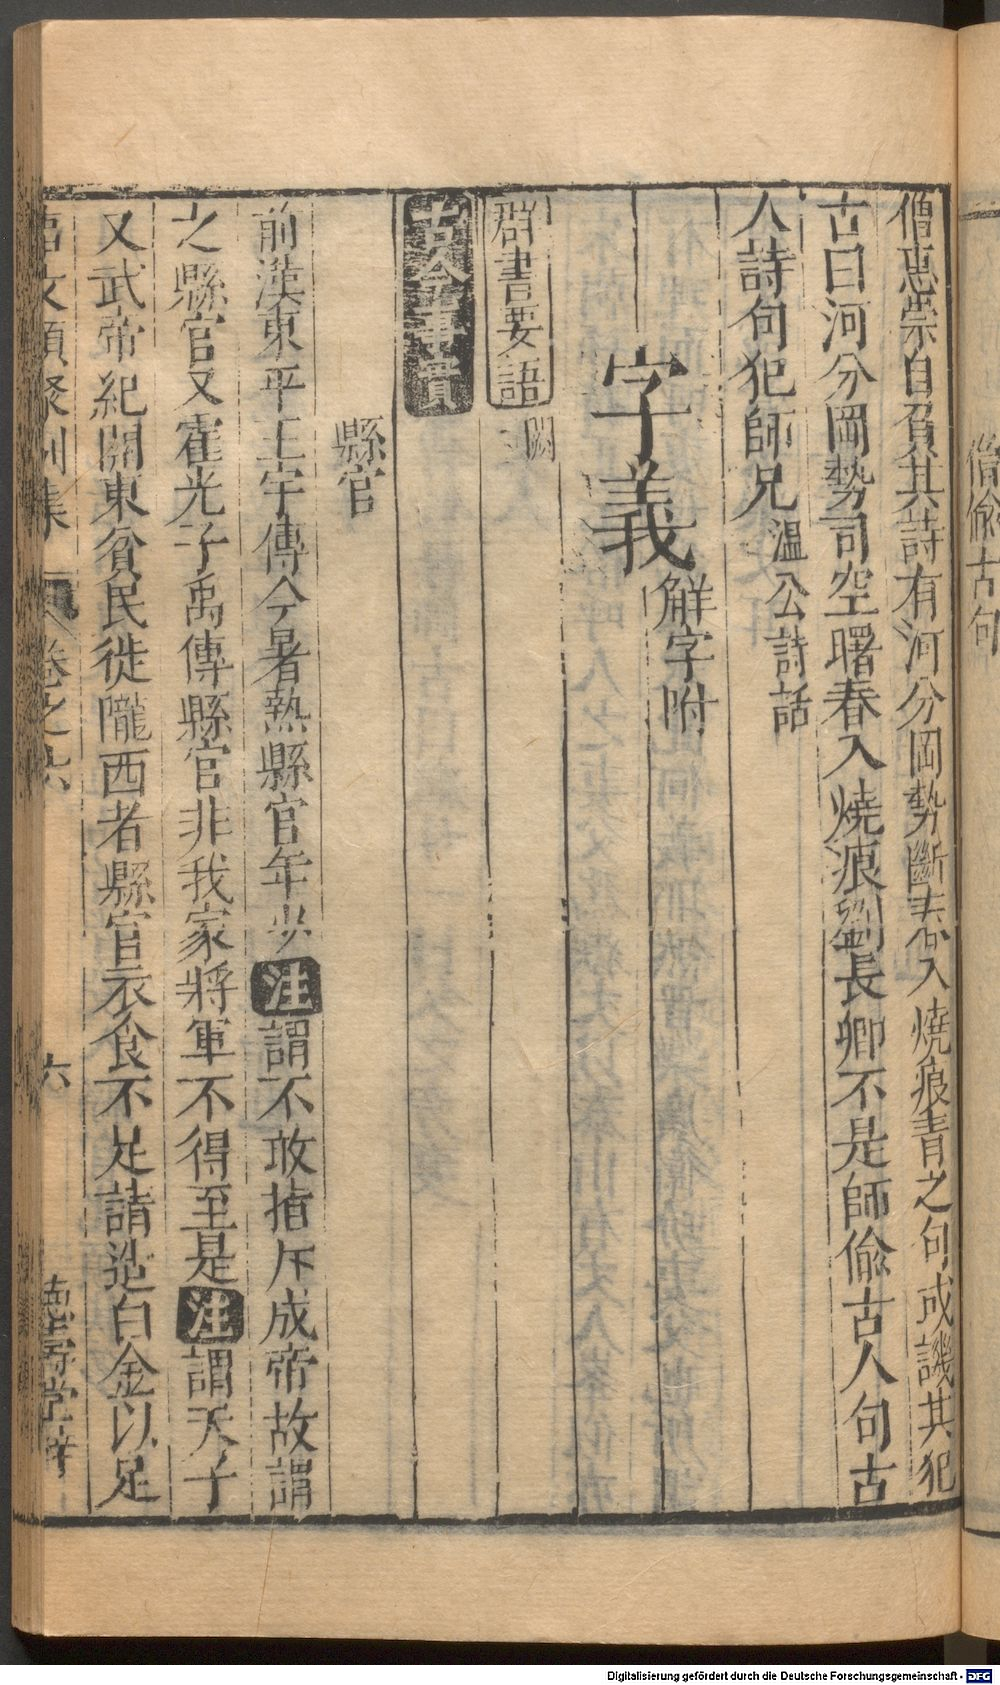 僧惠崇自負其詩有河分岡勢斷春入燒痕青之句或譏其犯
古曰河分岡勢司空曙春入燒痕劉長卿不是師偷古人句古
人詩句犯師兄溫公詩話
字義解字附
群書要語闕
古今事實
縣官
前漢東平王宇傳今暑熱縣官年少注謂不敢指斥成帝故謂
之縣官又霍光子禹傳縣官非我家將軍不得至是注謂天子
又武帝紀關東貧民徙隴西者縣官衣食不足請造白金以足
事文類聚別集 卷之六 六 德壽堂梓
偷古句
Digitalisierung gefördert durch die Deutsche Forschungsgemeinschaft - DFG